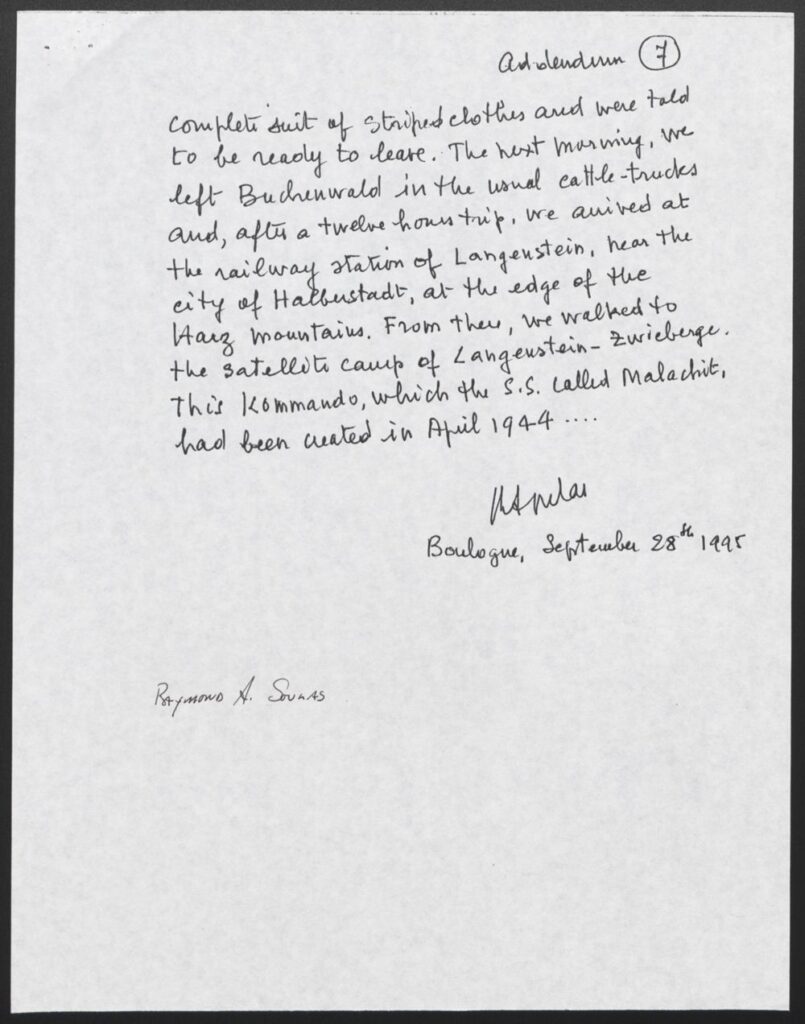 Addendum 7
complete suit of striped clothes and were told
to be ready to leave. The next morning, we
left Buchenwald in the usual cattle-trucks
and, after a twelve hours trip, we arrived at
the railway station of Langenstein, near the
city of Halberstadt, at the edge of the
Harz mountains. From there, we walked to
the satellite camp of Langenstein-Zwieberge.
This Kommando, which the S.S. called Malachit,
had been created in April 1944 ....
Boulogne, September 28th 1995
Raymond A. Soulas